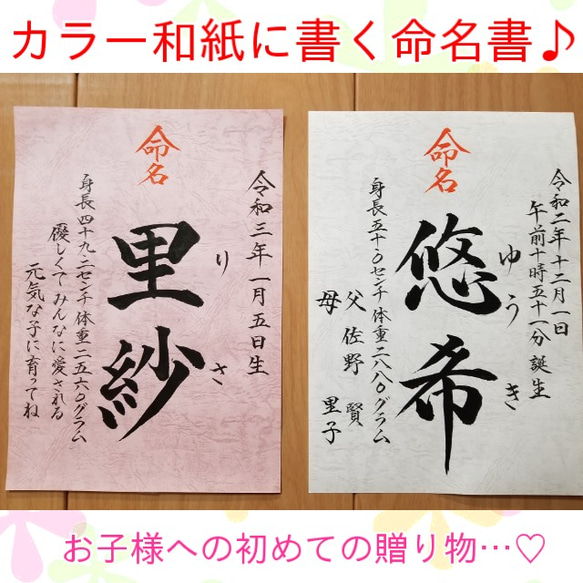 カラー和紙に書く命名書♪
命名
令和二年十二月一日
午前十時五十一分誕生
悠希
ゆうき
身長五十.〇センチ体重二八八〇グラム
父 佐野 賢
母 里子
命名
令和三年一月五日生
里紗
りさ
身長四十九.二センチ体重二五六〇グラム
優しくてみんなに愛される
元気な子に育ってね
お子様への初めての贈り物…♡